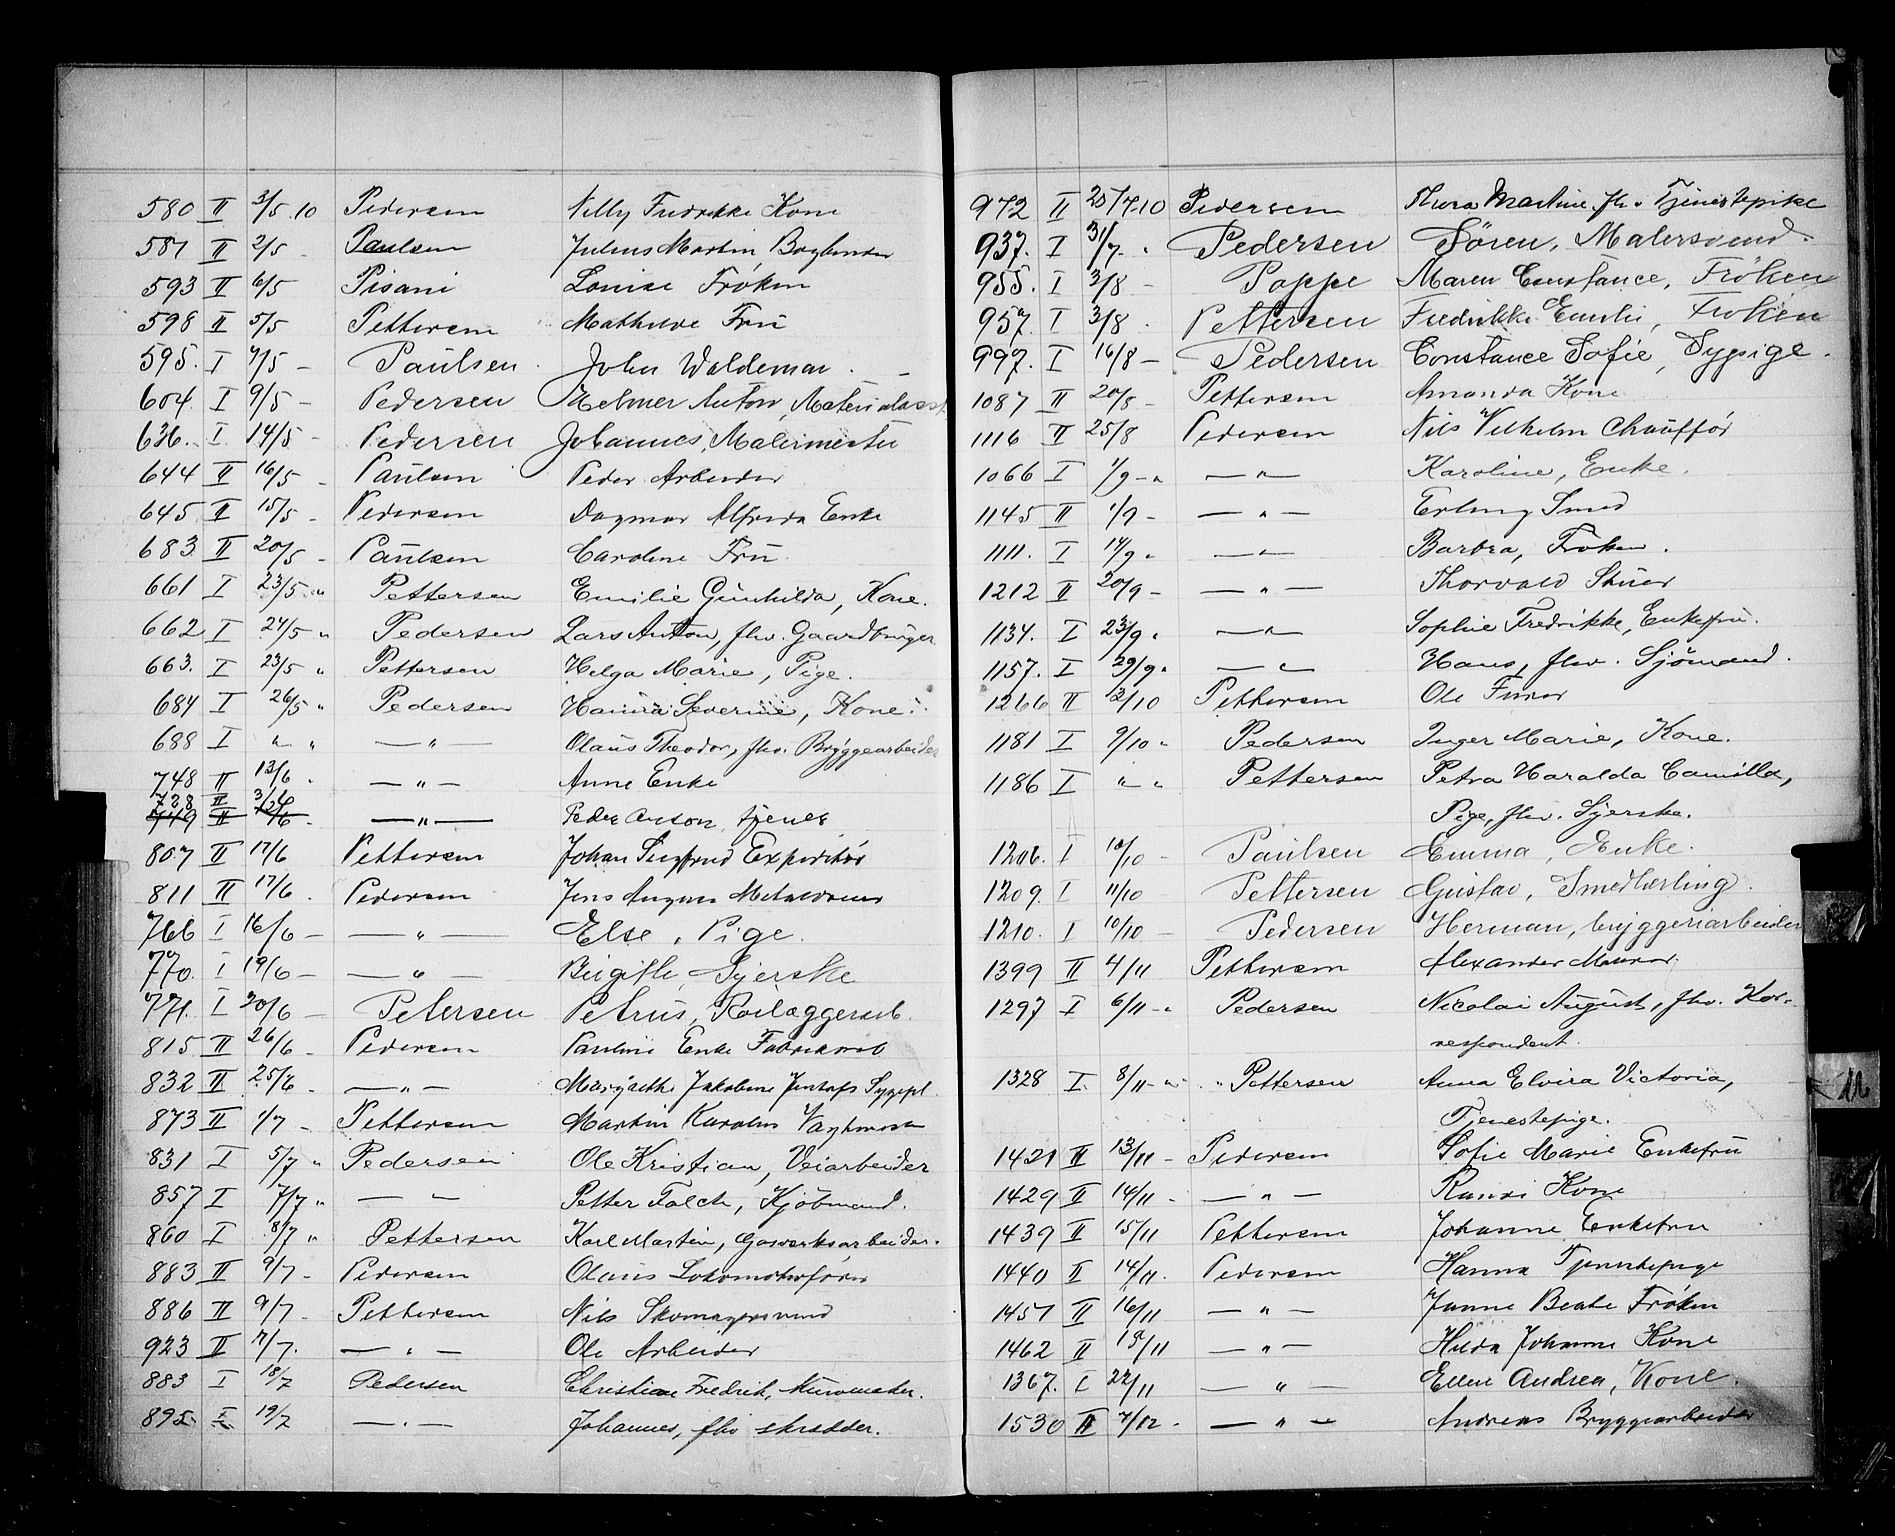 580 II 3/5 .10 Pedersen Nelly Fredrikke Kone
587 II 2/5 - Paulsen Julius Martin, Bogbinder
593 II 6/5 Pisani Louise Frøken
598 II 5/5 Pettersen Mathilde Fru
595. I 7/5 - Paulsen. John Waldemar. -
604. I 9/5 - Pedersen Helmer Anton, Materialasst.
636. I 14/5 - Pedersen Johannes, Malermester
644 II 16/5 - Paulsen Peder Arbeider
645 II 15/5 - Pedersen Dagmar Alfrida Enke
683 II 20/5 - Paulsen Caroline Fru
661 I 23/5 " Pettersen Emilie Gunhilda, Kone.
662 I 24/5 " Pedersen Lars Anton, fhv. Gaardbruger
663. I 23/5 " Pettersen Helga Marie, Pige.
684 I 26/5 " Pedersen Hanna Severine, Kone.
688 I " " — " — Olaus Theodor, fhv. Bryggearbeider
748 II 13/6 . — " — Anne Enke
728 II 3/6
749 II 12/6 . — " — Peder Anton tjener
807 II 17/6 Pettersen Johan Siegfried Expeditør
811 II 17/6 . Pedersen Jens August Metaldreier
766 I 16/6 - — " — Else, Pige.
770. I 19/6 - — " — Birgitte, Syerske
771. I 20/6 - Petersen Petrus, Rørlæggerarb.
815 II 26/6 - Pedersen Pauline Enke Fabrikarb
832 II 25/6 - — " — Margrethe Jakobine Sygepl.
873 II 1/7 - Pettersen Martin Karolus
831 I 5/7 " Pedersen Ole Kristian, Veiarbeider
857 I 7/7 " — " Petter Falch, Kjøbmand.
860 I 8/7 " Pettersen Karl Martin, Gasverksarbeider.
883 II 9/7 - Pedersen Olaus Lokomotivfører
886 II 9/7 - Pettersen Nils Skomagersvend
923 II 7/7. — " — Ole Arbeider
883 I 18/7 Pedersen Christian Fredrik, Murermester.
895 I 19/7 — " — Johannes, fhv skrædder.
972 II 25/7.10 Pedersen Thora Martine, fhv. Tjenestepike
937. I 31/7. " Pedersen Søren, Malersvend.
955. I 3/8 - Poppe Maren Constance, Frøken
957. I 3/8 . Pettersen Fredrikke Emilie, Frøken
997. I 16/8 - Pedersen Constance Sofie, Sypige.
1087 II 20/8 - Pettersen Amanda Kone
1116 II 25/8 Pedersen Nils Vilhelm Chauffør
1066 I 1/9 - " — " — Karoline, Enke.
1145 II 1/9 - — " — Erling Smed
1111. I 14/9 " — " — Barbra, Frøken.
1212 II 20/9 - — " — Thorvald Stuer
1134. I 23/9 " — " — Sophie Fredrikke, Enkefru.
1157. I 29/9 " — " — Hans, fhv. Sjömand.
1266 II 2/10 Pettersen Ole Furer
1181 I 9/10 " Pedersen Inger Marie, Kone.
1186 I " " Pettersen Petra Haralda Camilla,
Pige, fhv. Syerske.
1206. I 10/10 - Paulsen Emma, Enke.
1209. I 11/10 Pettersen Gustav, Smedlærling.
1210. I 10/10 - Pedersen Herman, bryggeriarbeider
1399 II 4/11 Pettersen Alexander Murer
1297 I 6/11 - " Pedersen Nicolai August, fhv. Kor-
respondent.
1328 I. 8/11 - " " Pettersen Anna Elvira Victoria,
Tjenestepige.
1421 II 13/11 - Pedersen Sofie Marie Enkefru
1429 II 14/11 - — " — Randi Kone
1439 II 15/11 Pettersen Johanne Enkefru
1440 II 14/11. Pedersen Hanna Tjenestepige
1457 II 16/11 — " — Janne Beate Frøken
1462 II 19/11 — " — Hilda Johanne Kone
1367. I 22/11 — " — Elene Andrea, Kone.
1530 II 7/12 - — " — Andreas Bryggearbeider